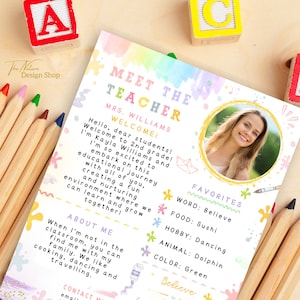 A
C
The Nature
Design Shop
MEET THE
TEACHER
MRS. WILLIAMS
WELCOME!
Hello, dear students!
Welcome to 2nd Grade!
I'm Kayla Williams and
I'm so excited to
embark on this
educational journey
with all of you,
creating a fun
and nurturing
environment where we
can learn and grow
together!
ABOUT ME
When I'm not in the
classroom, you can
find me with my
family. We like
cooking, dancing and
travelling.
CONTACT
FAVORITES
WORD: Believe
FOOD: Sushi
HOBBY: Dancing
ANIMAL: Dolphin
COLOR: Green
Believe